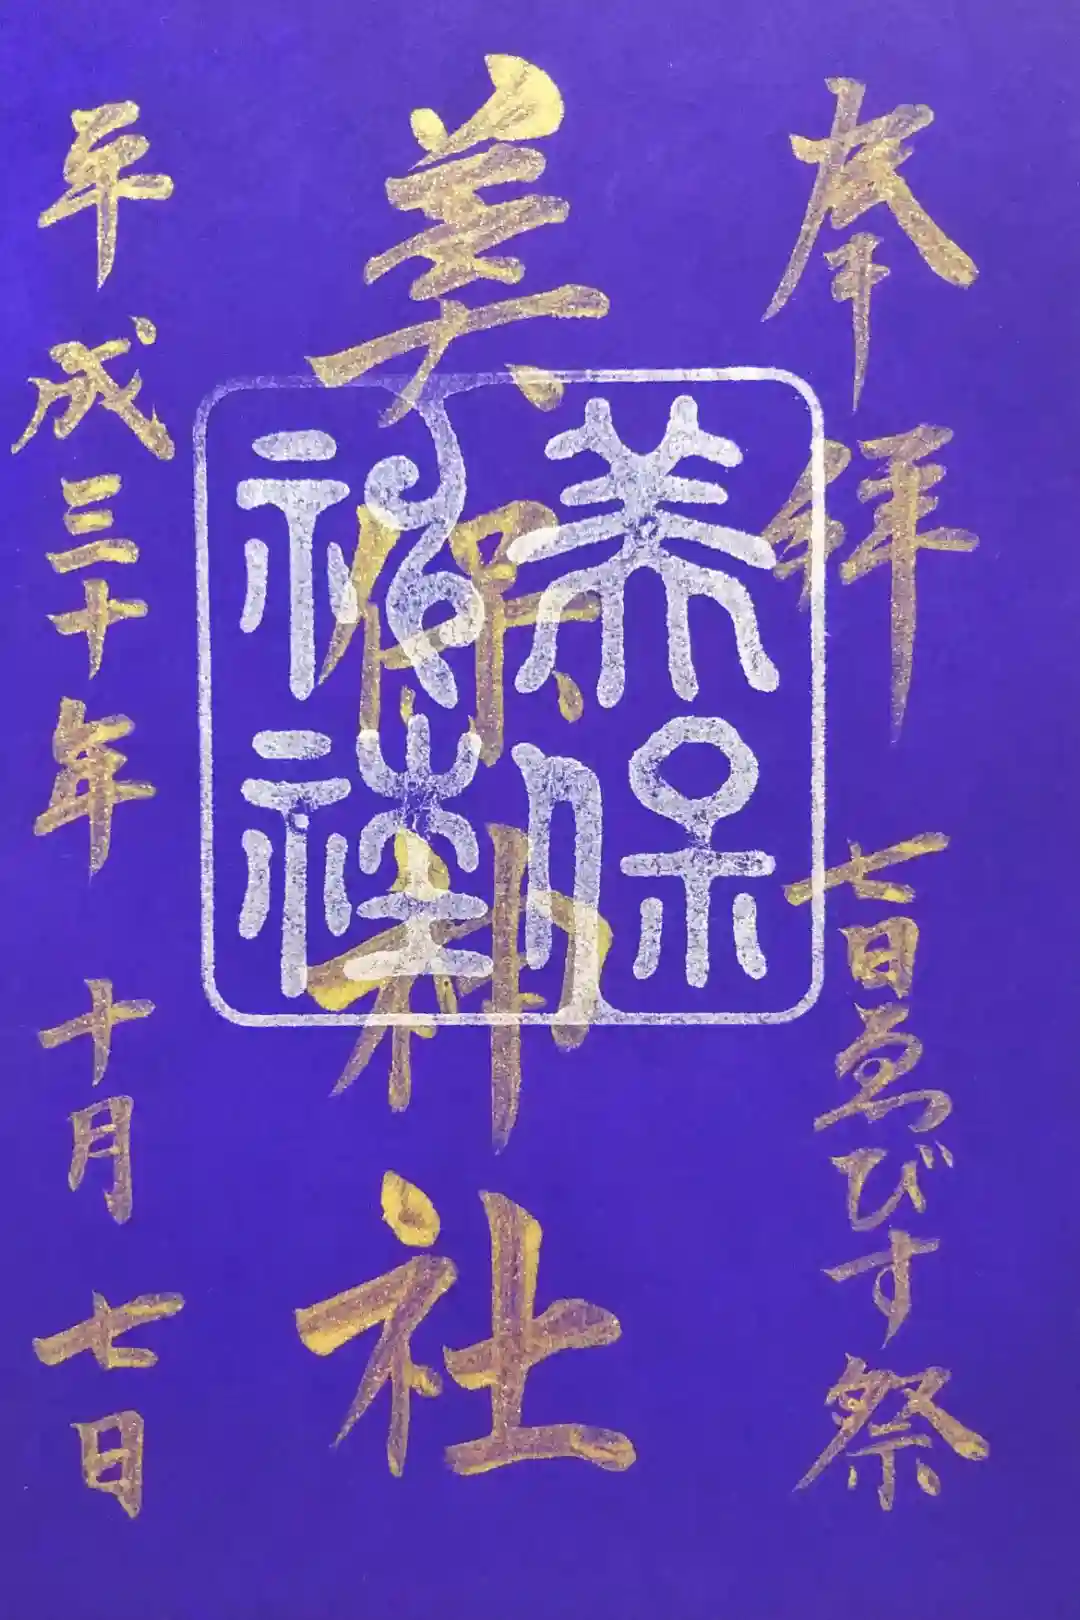 奉拝 七日ゑびす祭
美保神社
平成三十年 十月 七日
美保
神社